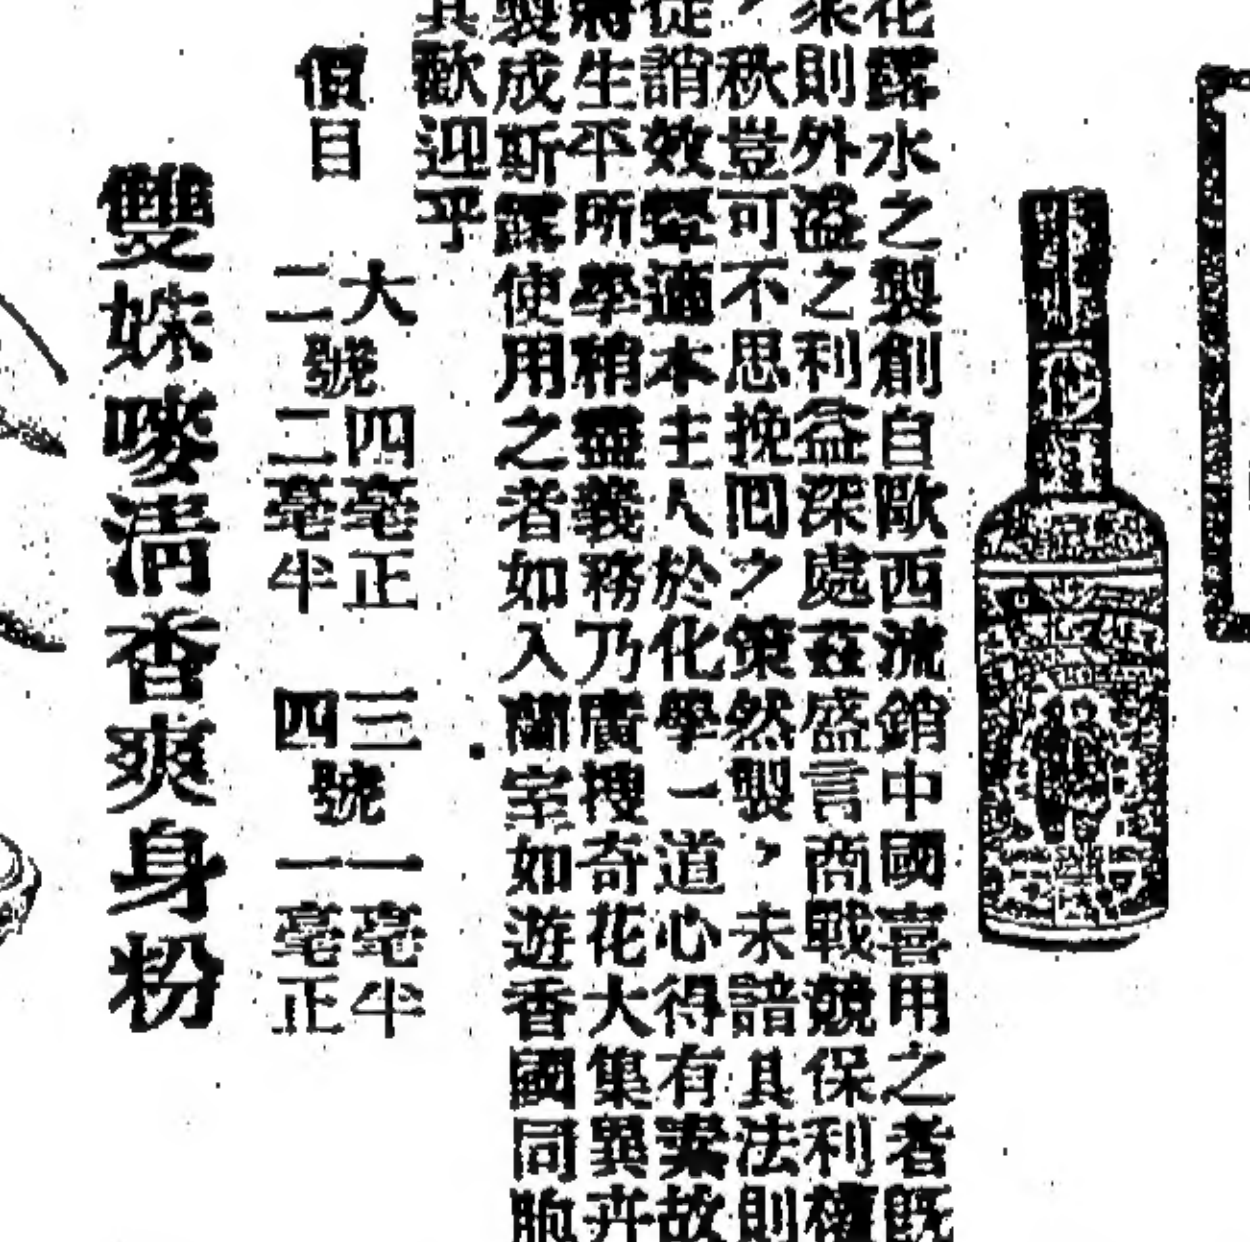 花露水之製創自歐西流銷中國喜用之者旣
來則外溢之利益深處茲盛言商戰競保利權
，秋豈可不思挽回之策然製，未諳具法則
從誚效顰適本主人於化學一道心得有素故
將生平所學稍盡義務乃廣搜奇花大集異卉
製成斯露使用之者如入蘭室如遊香國同胞
其歡迎乎
價目
大號四毫正
二號二毫半
三號一毫半
四號一毫正
雙妹嘜清香爽身粉